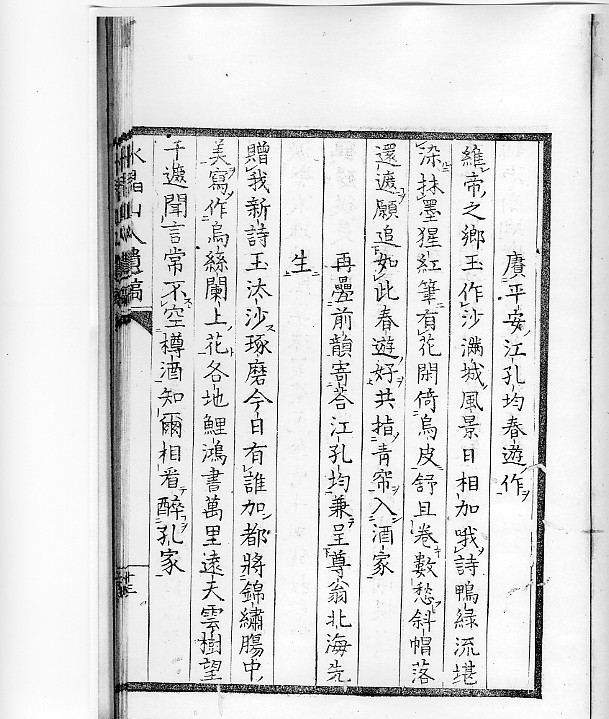 賡平安江孔均春遊作
維帝之鄉玉作沙滿城風景日相加哦詩鴨綠流堪
染抹墨猩紅筆有花閑倚烏皮舒且卷數愁斜帽落
還遮願追如此春遊好共指青帘入酒家
再疊前韻寄荅江孔均兼呈尊翁北海先
生
贈我新詩玉汰沙琢磨今日有誰加都將錦繡腸中
美寫作烏絲闌上花各地鯉鴻書萬里遠天雲樹望
千遮聞言常不空樽酒知爾相看醉孔家
山人遺稿